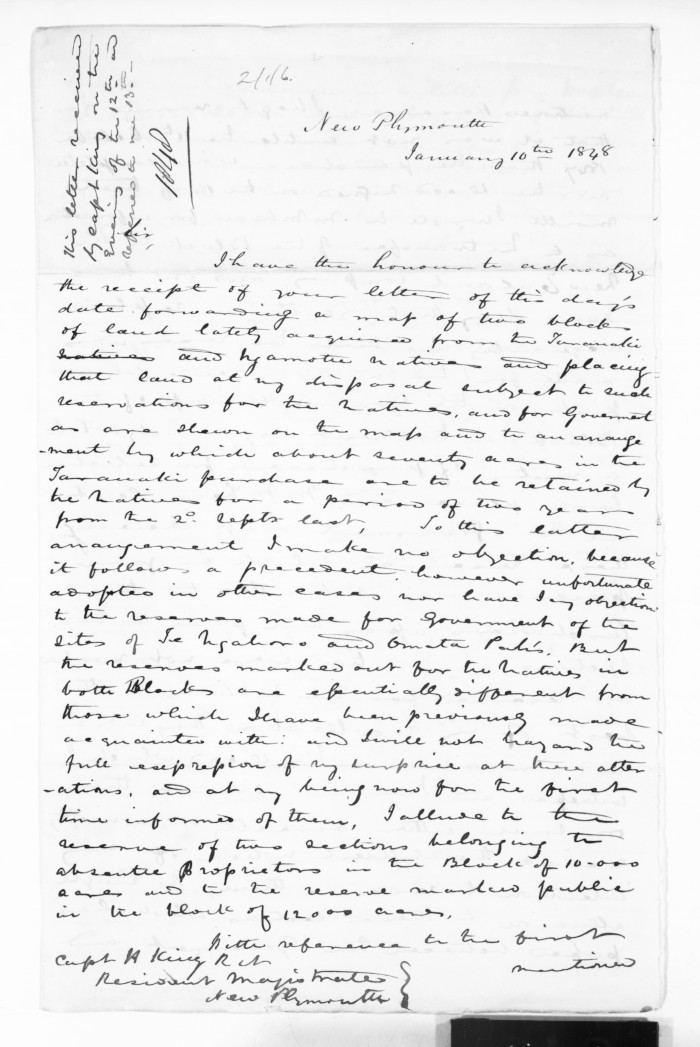 This letter received
by Capt King on the
Evening of the 12th and
2/16.
New Plymouth
January 10th 1848
Sir,
I have the honour to acknowledge
the receipt of your letter of this day's
date forwarding a map of two blocks
of land lately acquired from the Taranaki
natives and Ngamotu Natives and placing
that land at my disposal subject to such
reservations for the Natives, and for Goverment
as are shewn on the map and to an arrange
-ment by which about seventy acres in the
Taranaki purchase are to be retained by
the Natives for a period of two years
from the 2d. Septr last, To this latter
arrangement I make no objection, because
it follows a precedent, however unfortunate
adopted in other cases nor have I any objection
to the reserves made for Government of the
sites of Te Ngahoro and Omata Pah's, But
the reserves marked out for the Natives in
both Blocks are essentially different from
those which I have been previously made
acquainted with: and I will not hazard the
full expression of my surprise at these alter
-ations, and at my being now for the first
time informed of them, I allude to the
reserve of two sections belonging to
absentee Proprietors in the Block of 10.000
acres and to the reserve marked public
in the block of 12000 acres.
With reference to the first
mentioned
Capt H King R.N
Resident Magistrate
New Plymouth